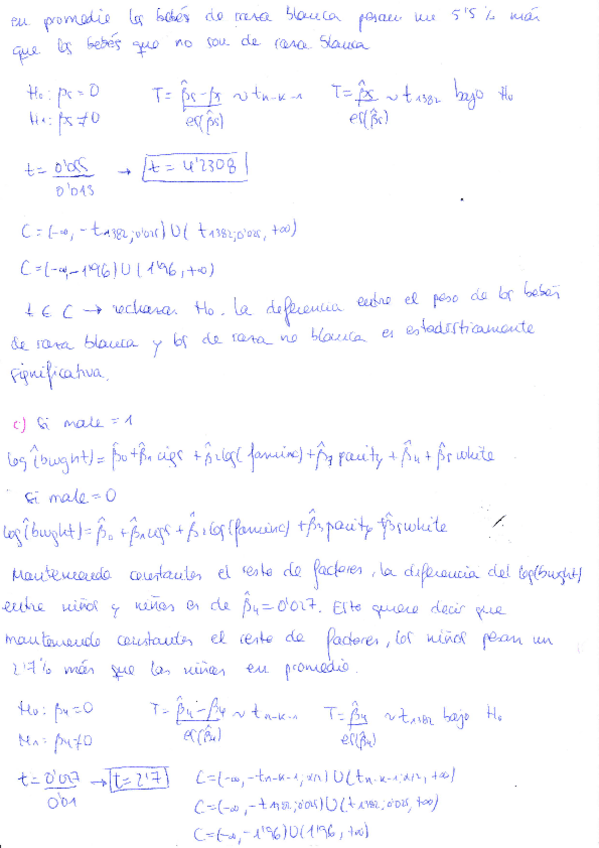 en promedio los bebés de raza blanca pesan un 5'5% más
que los bebés que no son de raza blanca
H₀: β₅=0    T= (β̂₅-β₅)/es(β̂₅) ~ tn-k-1    T= β̂₅/es(β̂₅) ~ t1382 bajo H₀
H₁: β₅≠0
t= 0'055/0'013 → t=4'2308
C=(-∞, -t1382;0'025)∪(t1382;0'025, +∞)
C=(-∞,-1'96)∪(1'96,+∞)
t ∈ C → rechazar H₀. La diferencia entre el peso de los bebés
de raza blanca y los de raza no blanca es estadísticamente
significativa.
c) Si male=1
log(bwght)^= β̂₀+β̂₁cigs + β̂₂log(faminc)+β̂₃parity+β̂₄+β̂₅white
Si male=0
log(bwght)^= β̂₀+β̂₁cigs+β̂₂log(faminc)+β̂₃parity+β̂₅white
Manteniendo constantes el resto de factores, la diferencia del log(bwght)
entre niños y niñas es de β̂₄=0'027. Esto quiere decir que
manteniendo constantes el resto de factores, los niños pesan un
2'7% más que las niñas en promedio.
H₀: β₄=0    T= (β̂₄-β₄)/es(β̂₄) ~ tn-k-1    T= β̂₄/es(β̂₄) ~ t1382 bajo H₀
H₁: β₄≠0
t= 0'027/0'01 → t=2'7    C=(-∞, -tn-k-1;α/2)∪(tn-k-1;α/2, +∞)
C=(-∞, -t1382;0'025)∪(t1382;0'025, +∞)
C=(-∞,-1'96)∪(1'96, +∞)